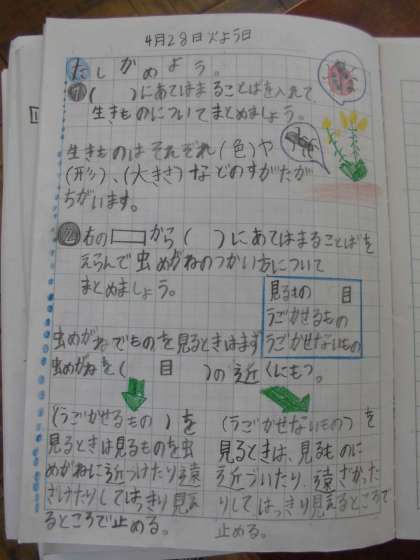 4月28日火よう日
たしかめよう。
①( )にあてはまることばを入れて
生きものについてまとめましょう。
生きものはそれぞれ(色)や
(形)、(大きさ)などのすがたが
ちがいます。
②右の から( )にあてはまることばを
えらんで虫めがねのつかい方について
まとめましょう。
見るもの 目
うごかせるもの
うごかせないもの
虫めがねでものを見るときはまず
虫めがねを( 目 )の近くにもつ。
(うごかせるもの )を
見るときは見るものを虫
めがねに近づけたり遠
ざけたりしてはっきり見え
るところで止める。
(うごかせないもの)を
見るときは、見るものに
近づいたり、遠ざかった
りして、はっきり見えるところで
止める。